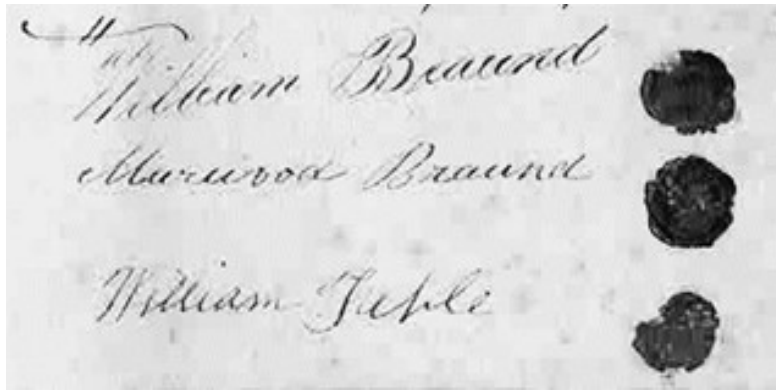 William Braund
Murwood Braund
William